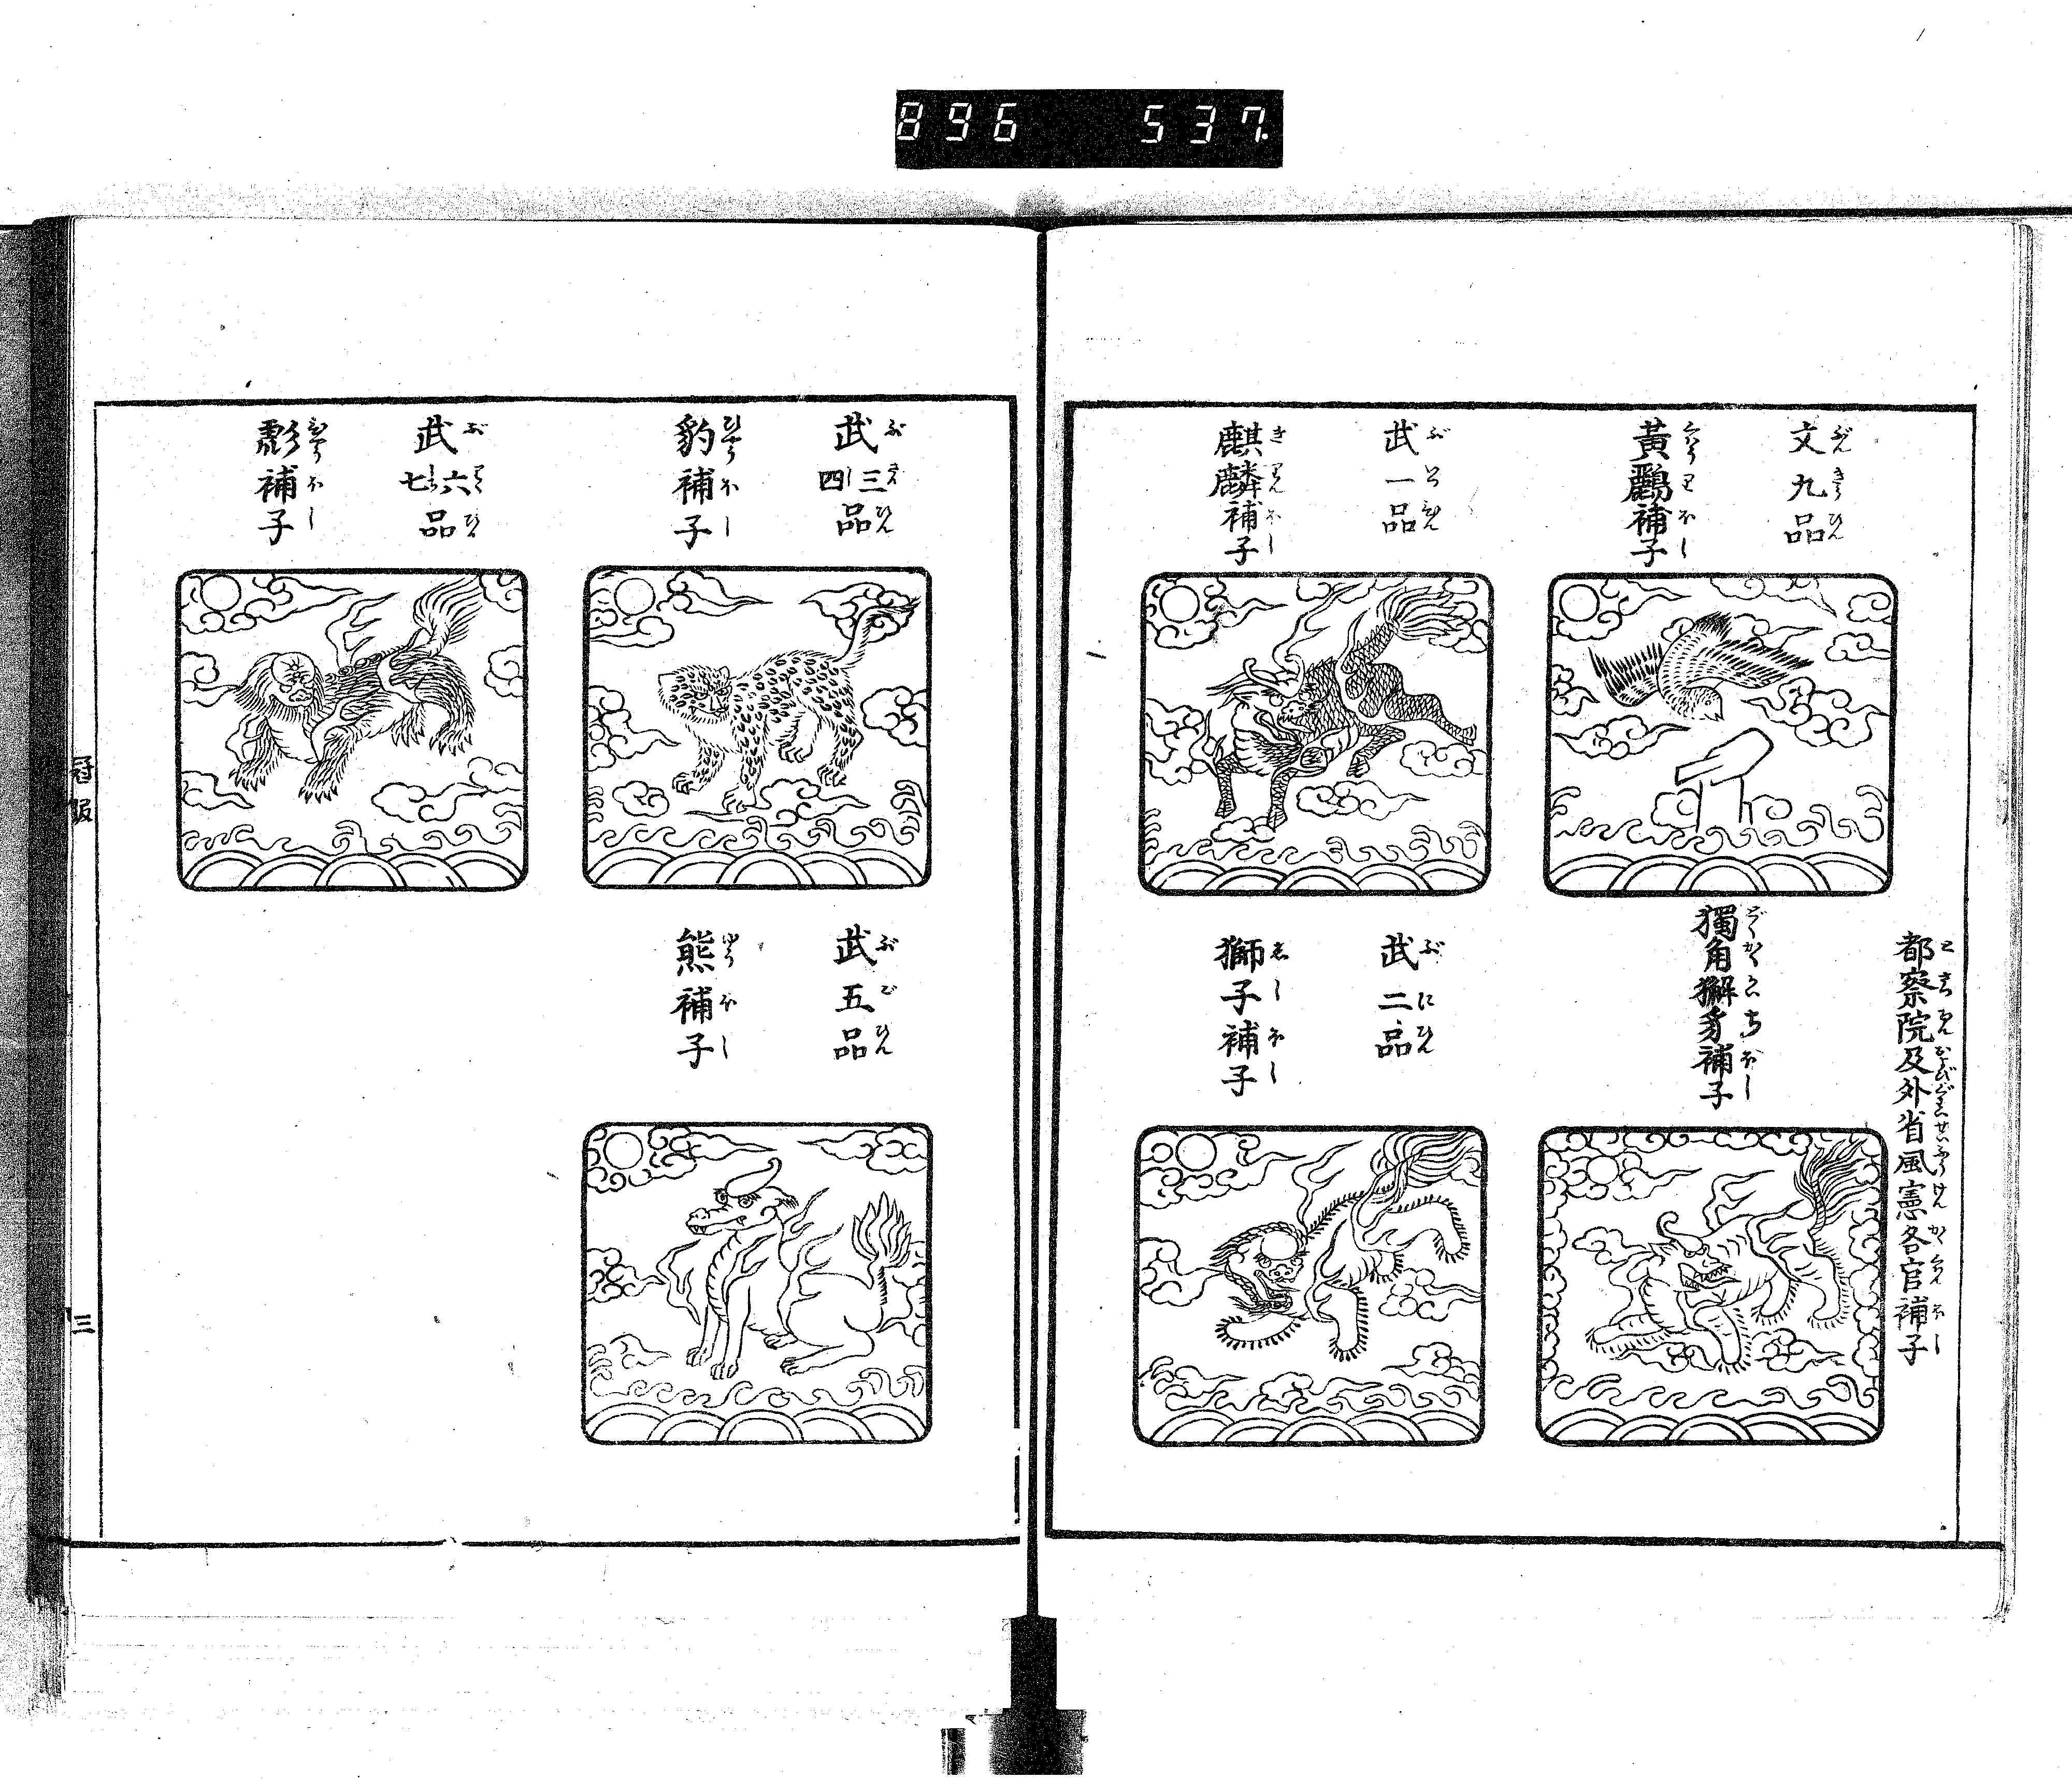 896 537.
文九品
黃鸝補子
武一品
麒麟補子
都察院及外省風憲各官補子
獨角獬豸補子
武二品
獅子補子
武三四品
豹補子
武六七品
彪補子
武五品
熊補子
冠服
三